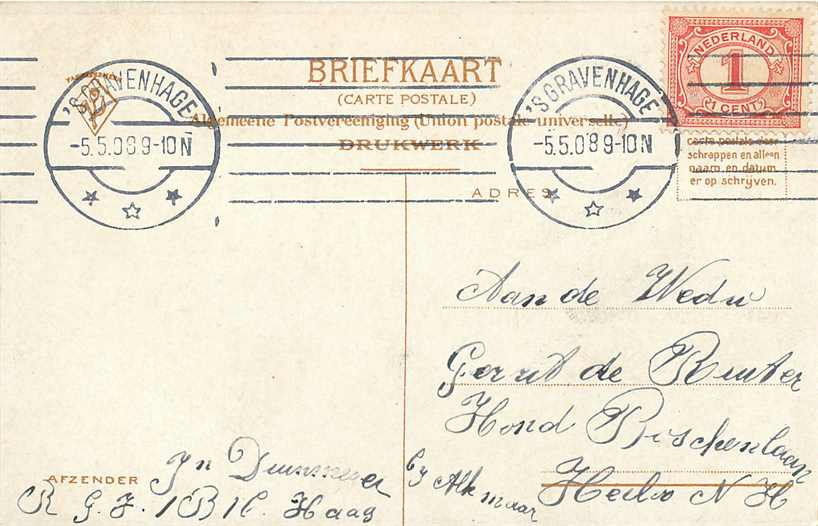 BRIEFKAART
(CARTE POSTALE)
Algemeene Postvereeniging (Union postale universelle)
DRUKWERK
'S GRAVENHAGE
-5.5.08 9-10N
'S GRAVENHAGE
-5.5.08 9-10N
NEDERLAND
1
(1 CENT)
carte postale door
schrappen en alleen
naam en datum
er op schrijven.
ADRES
Aan de Wedu
Gerrit de Ruiter
Hond Bosschenlaan
Heilo N H
by Alkmaar
AFZENDER
Haag